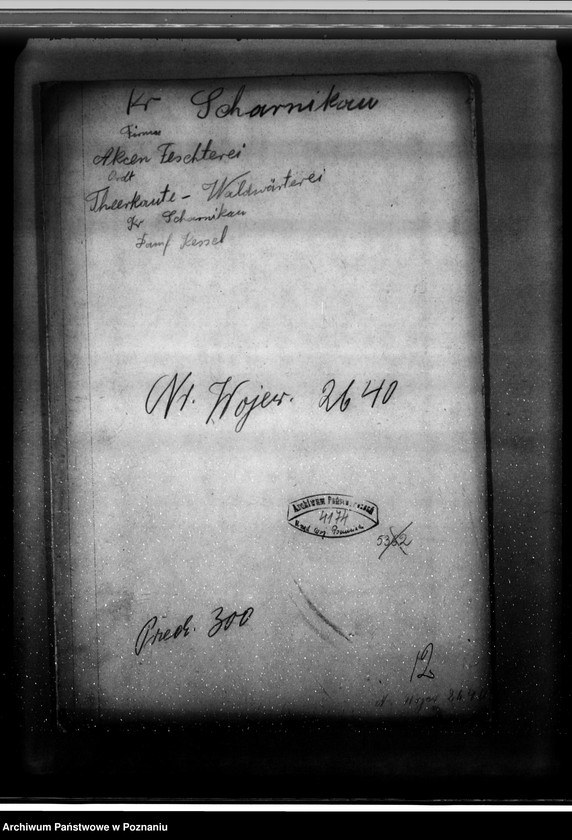 Kr Scharnikau
Firma
Akcen Teschterei
Ordt
Theerkaute - Waldwärterei
Kr Scharnikau
Damf Kessel
Nr. Wojew. 2640
Archiwum Państw. Poznań
4174
5362
300
12
Nr. Wojew 2640
Archiwum Państwowe w Poznaniu